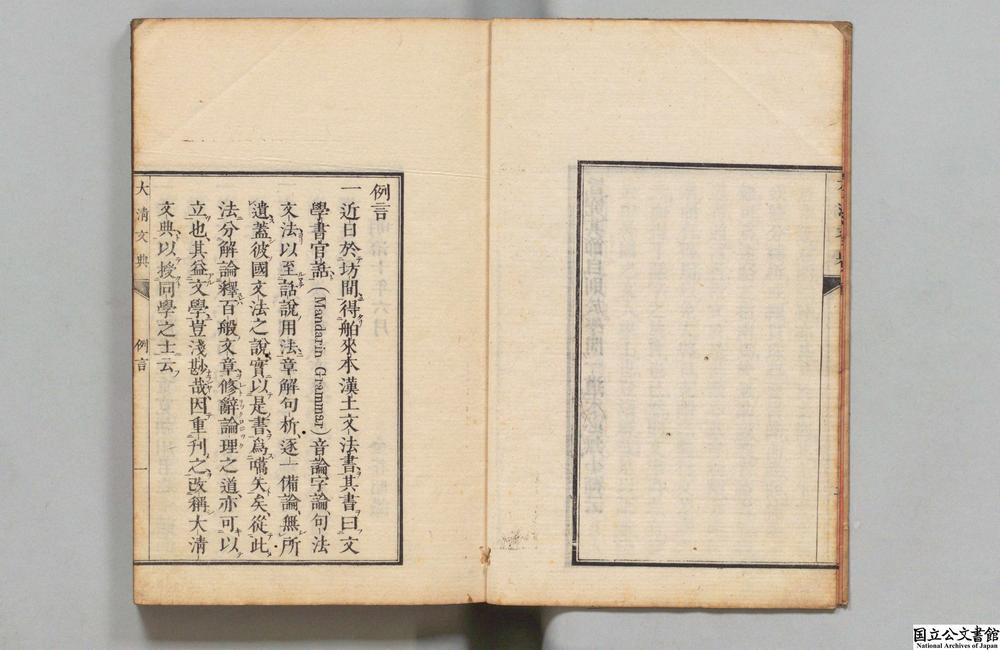 例言
一近日於坊間得舶來本漢土文法書其書曰文
學書官話(Mandarin Grammar)音論字論句法
文法以至話說用法章解句析逐一備論無所
遺蓋彼國文法之說實以是書爲嚆矢矣從此
法分解論釋百般文章修辭論理之道亦可以
立也其益文學豈淺尠哉因重刊之改稱大清
文典以授同學之士云
大清文典 例言 一
国立公文書館
National Archives of Japan